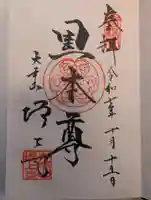 奉拝
令和六年十月十五日
黒本尊
大本山
増上寺